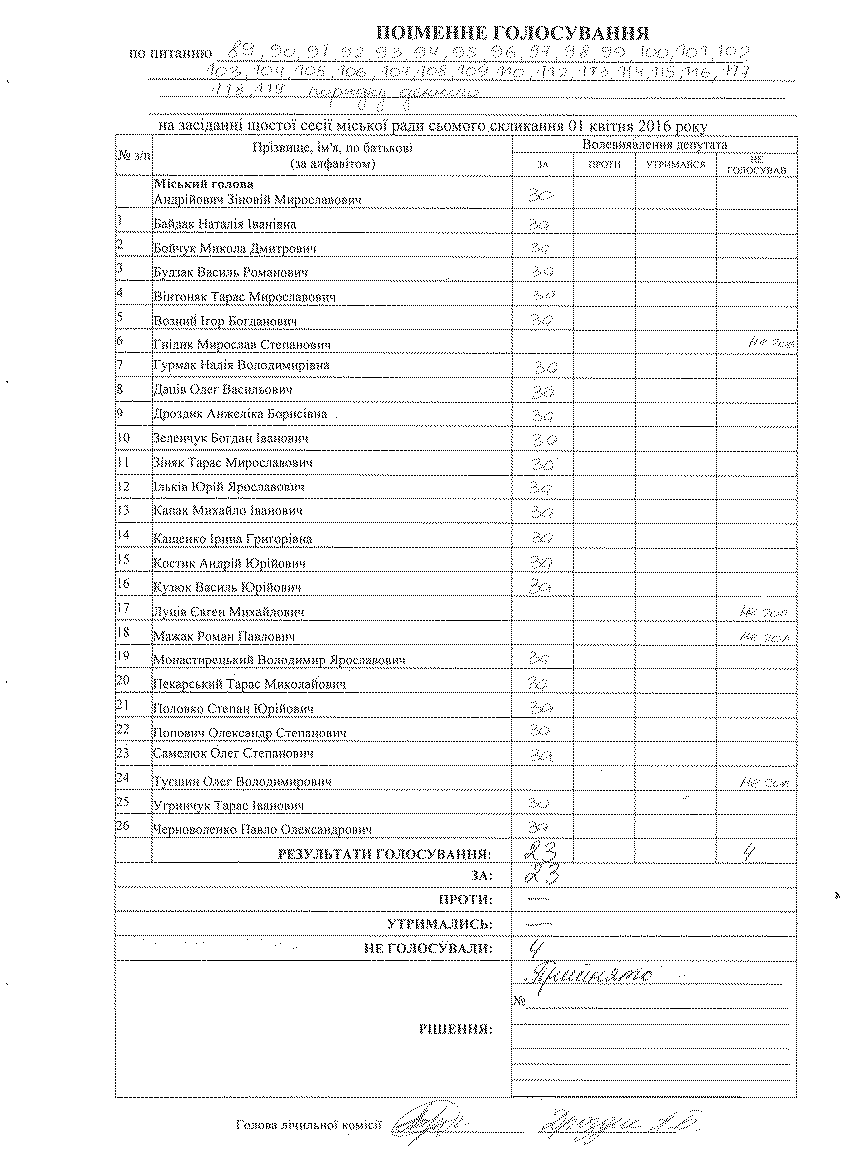 ПОІМЕННЕ ГОЛОСУВАННЯ
по питанню 89, 90, 91, 92, 93, 94, 95, 96, 97, 98, 99, 100, 101, 102
103, 104, 105, 106, 107, 108, 109, 110, 112, 113, 114, 115, 116, 117
118, 119 порядку денного
на засіданні шостої сесії міської ради сьомого скликання 01 квітня 2016 року
№ з/п Прізвище, ім'я, по батькові (за алфавітом) Волевиявлення депутата
ЗА ПРОТИ УТРИМАВСЯ НЕ ГОЛОСУВАВ
Міський голова
Андрійович Зіновій Мирославович зо
1 Байдак Наталія Іванівна зо
2 Бойчук Микола Дмитрович зо
3 Будзак Василь Романович зо
4 Вінтоняк Тарас Мирославович зо
5 Возний Ігор Богданович зо
6 Гнідик Мирослав Степанович не гол
7 Гурмак Надія Володимирівна зо
8 Даців Олег Васильович зо
9 Дроздик Анжеліка Борисівна зо
10 Зеленчук Богдан Іванович зо
11 Зіняк Тарас Мирославович зо
12 Ільків Юрій Ярославович зо
13 Капак Михайло Іванович зо
14 Кащенко Ірина Григорівна зо
15 Костик Андрій Юрійович зо
16 Кузюк Василь Юрійович зо
17 Луців Євген Михайлович не гол
18 Мажак Роман Павлович не гол
19 Монастирецький Володимир Ярославович зо
20 Пекарський Тарас Миколайович зо
21 Половко Степан Юрійович зо
22 Попович Олександр Степанович зо
23 Самелюк Олег Степанович зо
24 Тусшин Олег Володимирович не гол
25 Угринчук Тарас Іванович зо
26 Черноволенко Павло Олександрович зо
РЕЗУЛЬТАТИ ГОЛОСУВАННЯ: 23 4
ЗА: 23
ПРОТИ: —
УТРИМАЛИСЬ: —
НЕ ГОЛОСУВАЛИ: 4
Прийнято
№
РІШЕННЯ:
Голова лічильної комісії